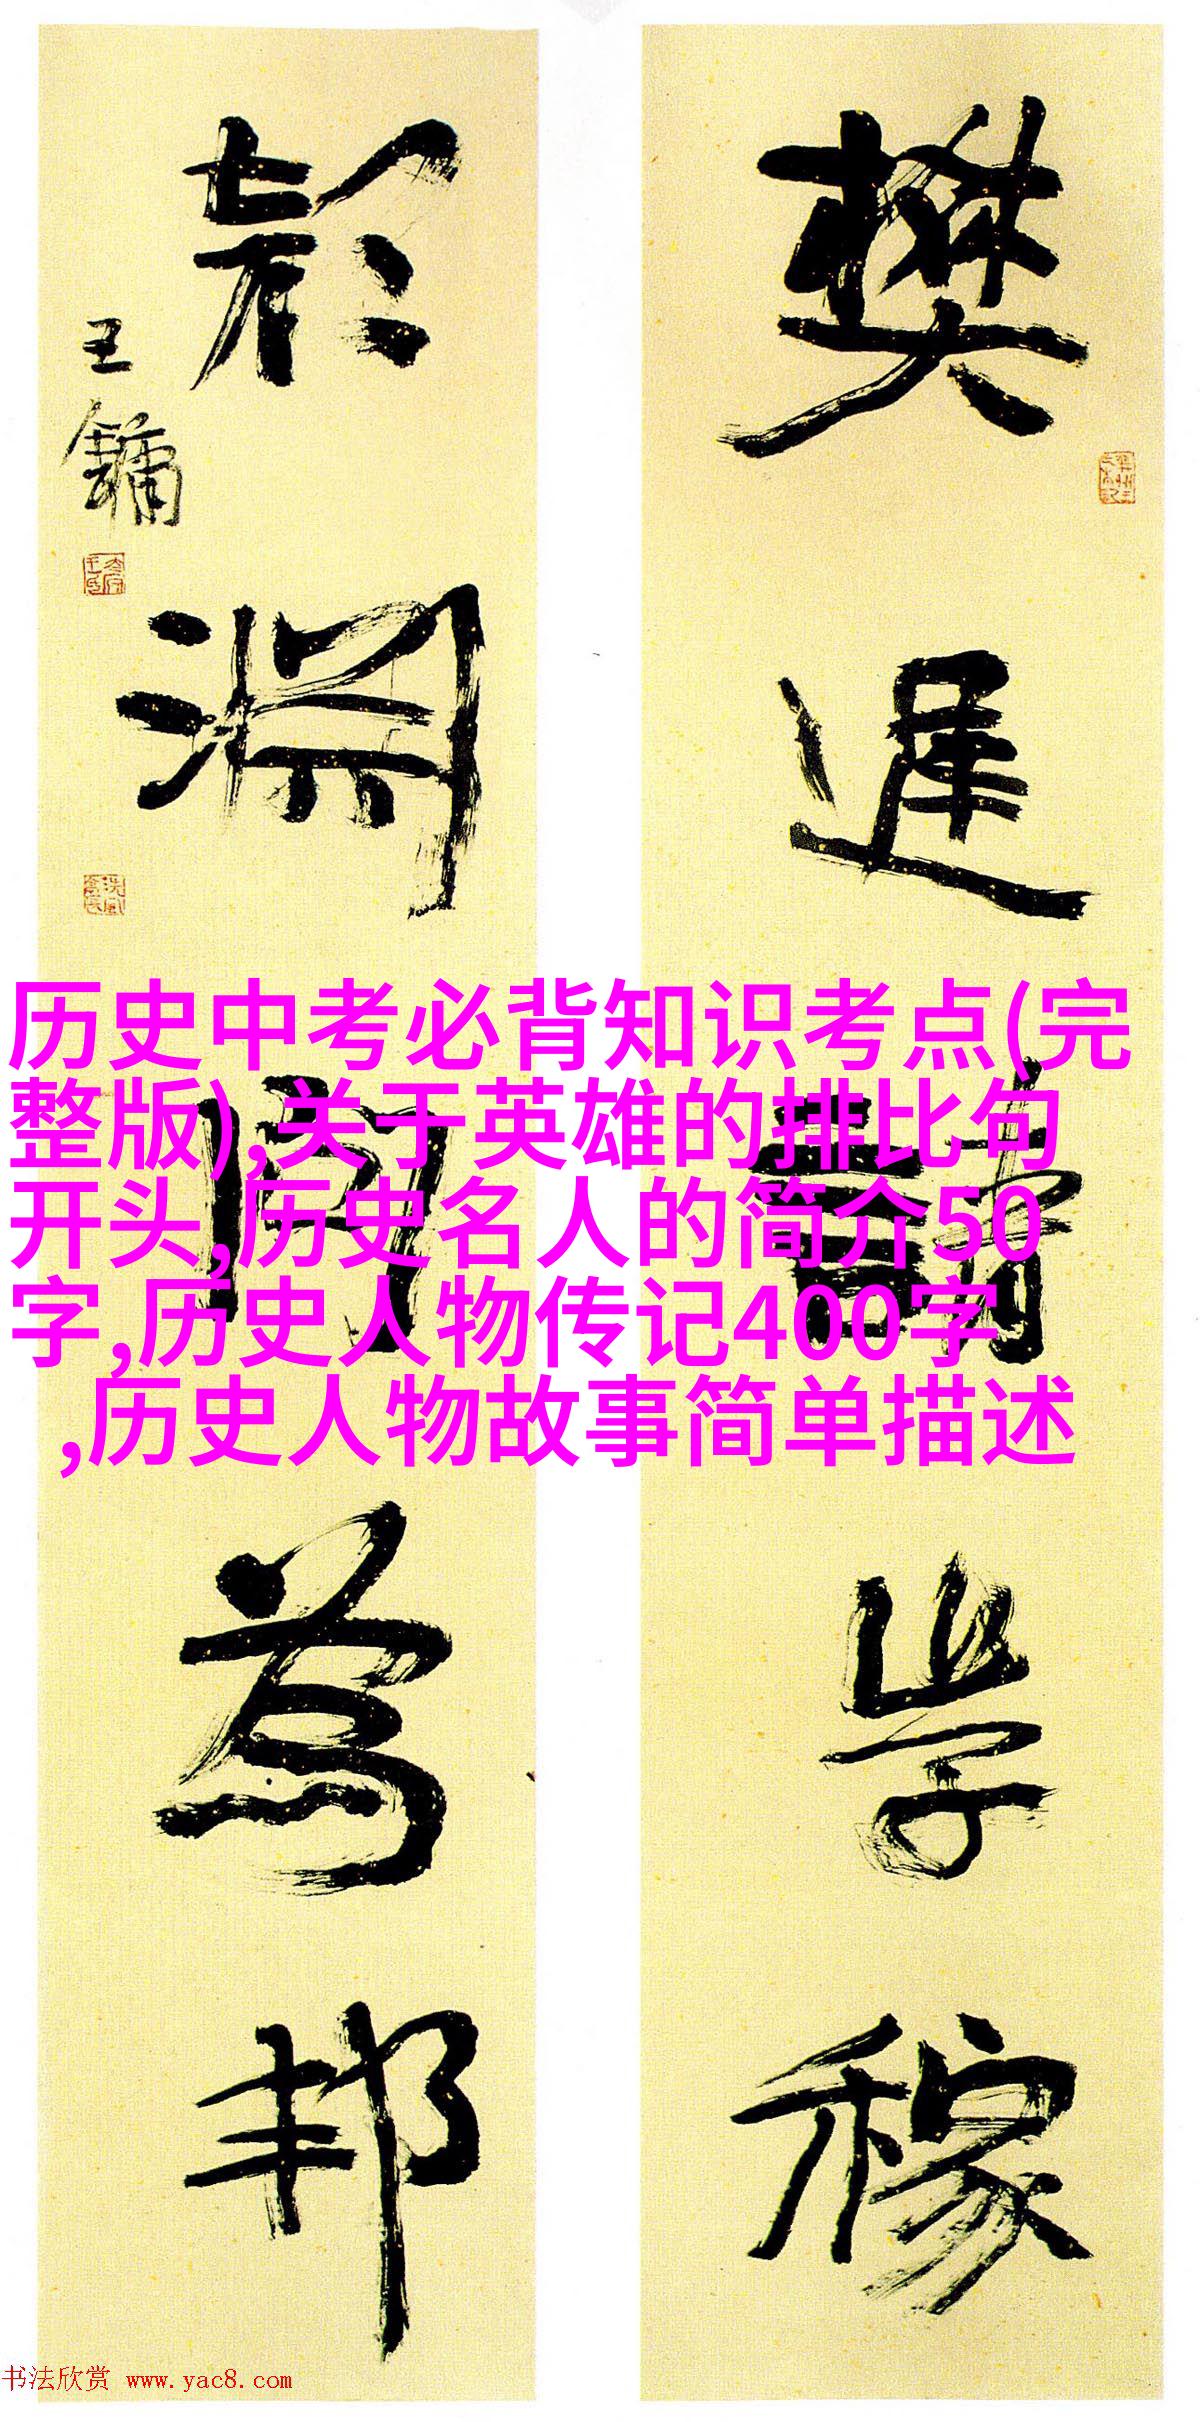 樊遲請學稼
顏淵問為邦
王鏞
历史中考必背知识考点(完
整版),关于英雄的排比句
开头,历史名人的简介50
字,历史人物传记400字
,历史人物故事简单描述
书法欣赏 www.yac8.com